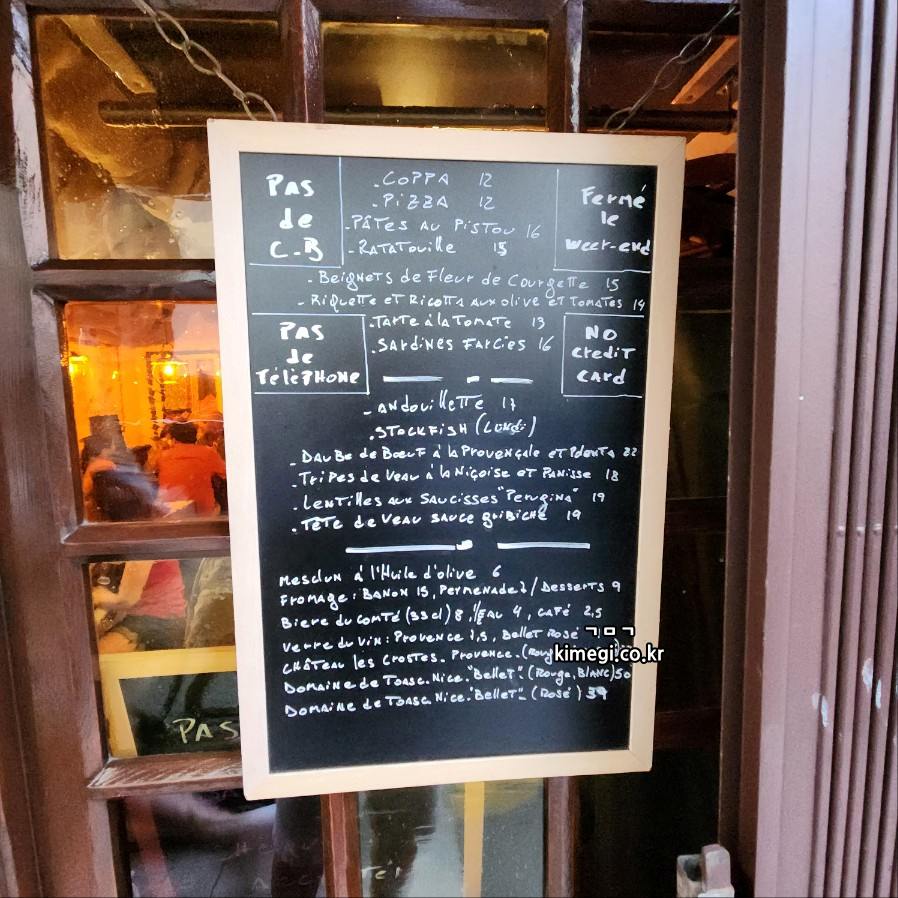 PAS
de
C.B
Fermé
le
week-end
. COPPA 12
. PiZZA 12
. PÂTES AU PiSTOU 16
- RATATouille 15
. Beignets de Fleur de Courgette 15
- RiQuette et Ricotta aux olive et Tomates 14
PAS
de
TÉLÉPHONE
NO
CrediT
CARd
. TARTE à la Tomate 13
. SARdiNES FARCiES 16
- ANdouilleTTe 17
. STOCKFiSH (Lundi)
. DAUBE de BŒUF à la ProvenÇale et Polenta 22
. Tripes de Veau à la Niçoise et Panisse 18
. LenTilles aux Saucisses "Perugina" 19
. TÊTE de Veau Sauce gribiche 19
Mesclun à l'Huile d'olive 6
Fromage : BANON 15, / Desserts 9
Biere du comté (33 cl) 8, EAU 4, CAFÉ 2,5
Verre du Vin : Provence Bellet Rosé
CHÂTEAU les Crostes. Provence.
Domaine de Toasc. Nice. "Bellet". (Rouge, Blanc) 50
Domaine de Toasc. Nice. "Bellet" _ (Rosé) 39
PAS
ㄱㅁㄱ
kimegi.co.kr